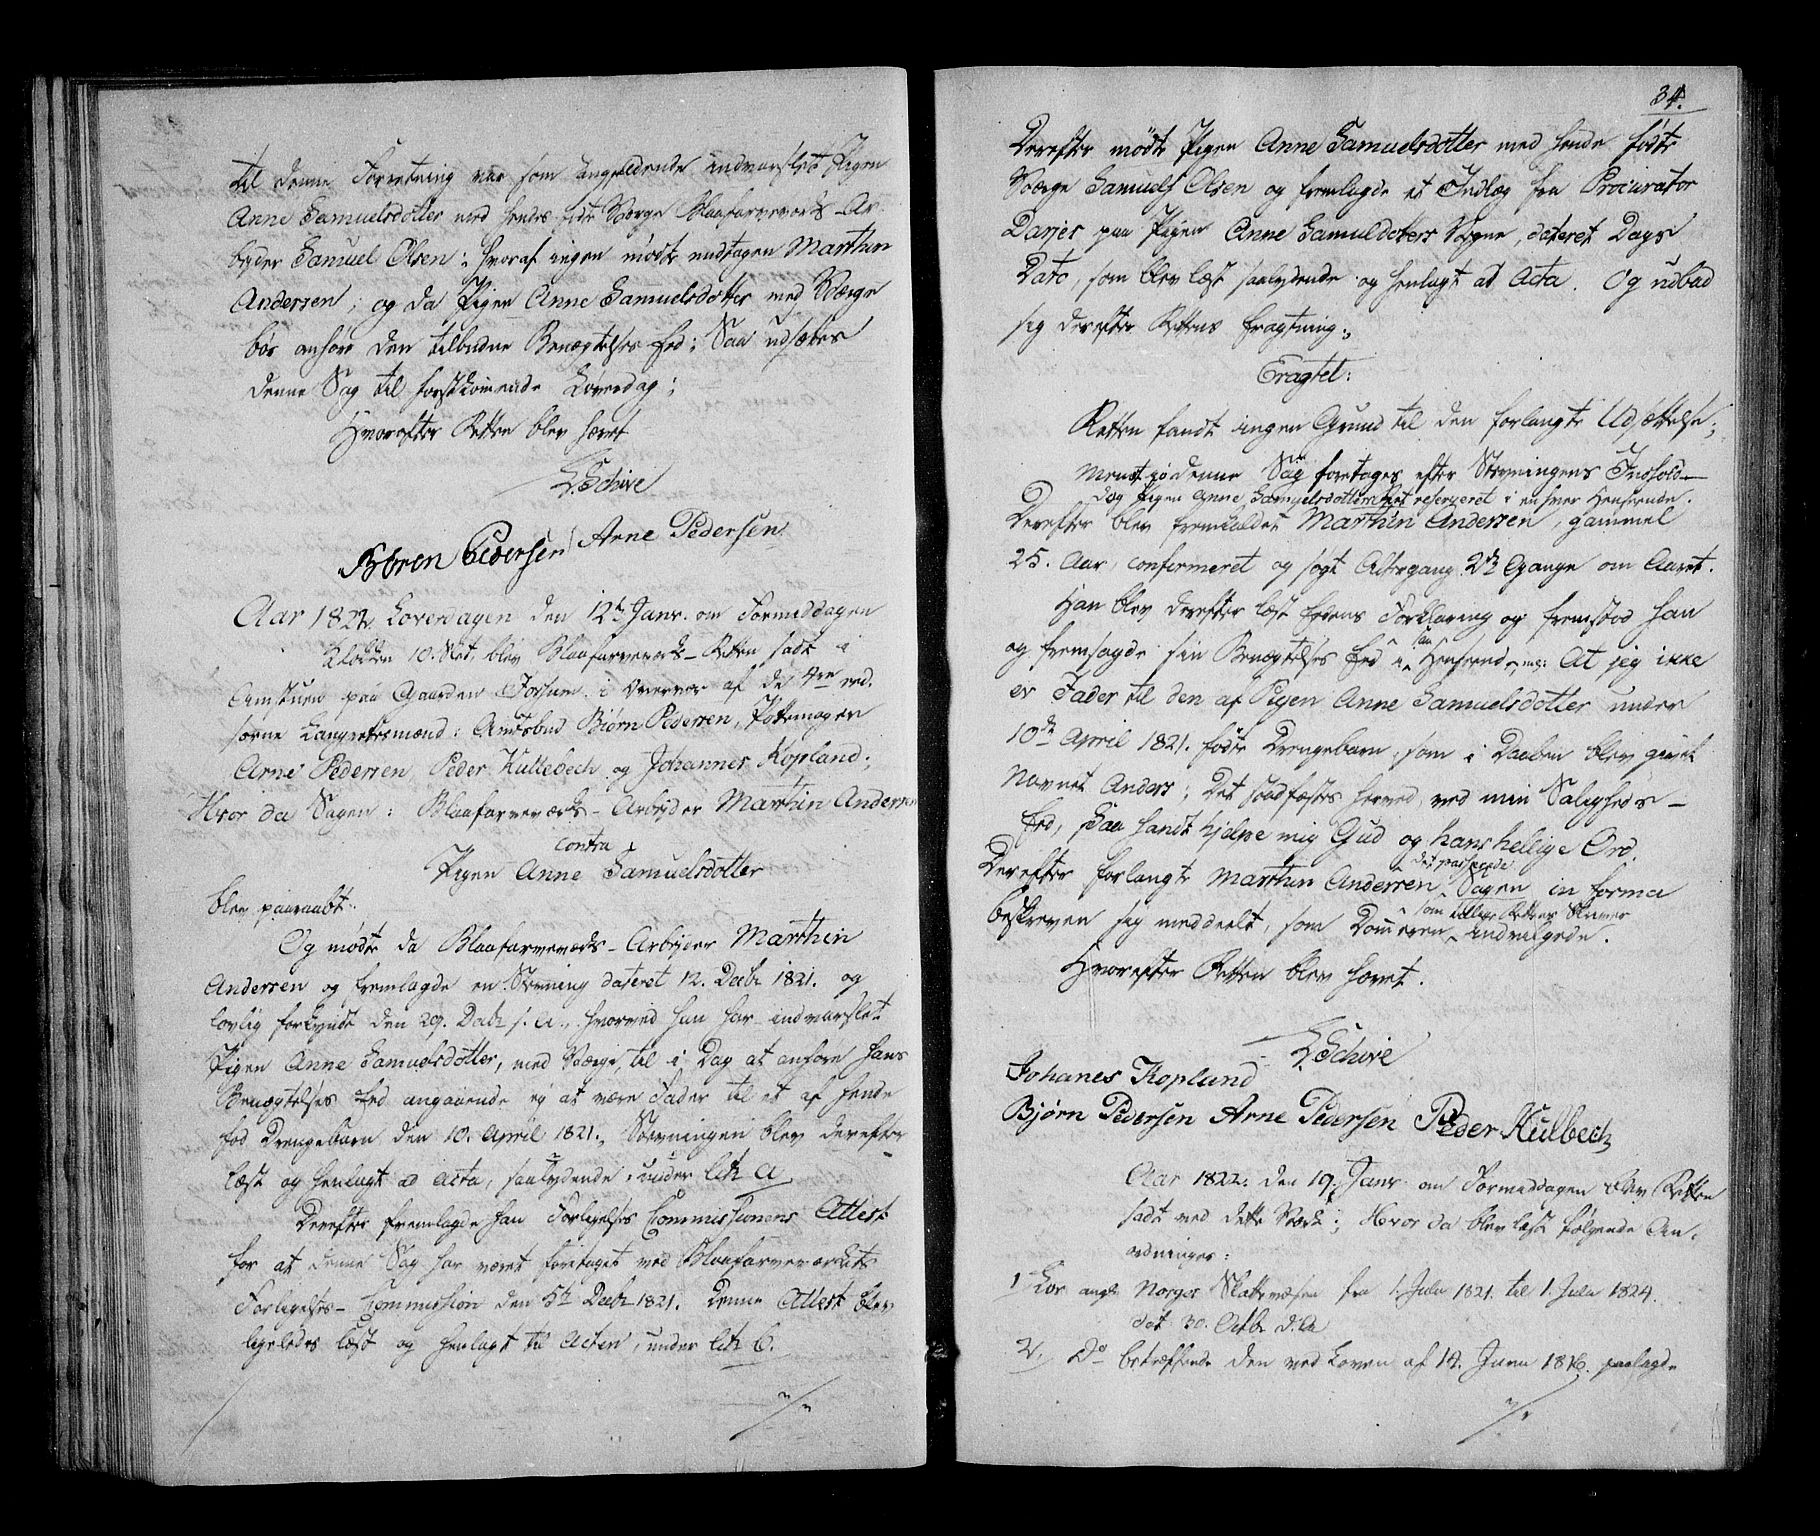 til denne Forretning var som angjeldende indvarslet Pigen
Anne Samuelsdotter med hendes fødte Værge Blaafarveværks-Ar-
byder Samuel Olsen: hvoraf ingen mødte undtagen Marthin
Andersen; og da Pigen Anne Samuelsdotter med Værge
bør anhøre den tilbudne Benægtelses Eed; Saa udsættes
denne Sag til førstkommende Løverdag;
Hvorefter Retten blev hævet
L. Schive
Biøren Pedersen Arne Pedersen
Aar 1822. Løverdagen den 12te Janr. om Formiddagen
Klokken 10. Slet, blev Blaafarveværks-Retten sadt i
Amtstuen paa Gaarden Fossum i Overvær af de 4re eed-
sorne Laugrettesmænd: Amtsbud Biørn Pedersen, Pottemager
Arne Pedersen Peder Kullebech og Johannes Kopland;
Hvor da Sagen: Blaafarveværks-Arbejder Marthin Andersen
contra
Pigen Anne Samuelsdotter
blev paaraabt.
Og mødte da Blaafarveværks-Arbejder Marthin
Andersen og fremlagde en Stevning dateret 12. Decbr 1821. og
lovlig forkyndt den 29. Decbr s. A., hvorved han har indvarslet
Pigen Anne Samuelsdotter, med Værge, til i Dag at anhøre hans
Benægtelses Eed angaaende ej at være Fader til et af hende
fød Drengebarn den 10. April 1821., Stevningen blev derefter
læst og henlagt ad Acta, saalydende, under litr a
Derefter fremlagde han Forligelses Commissionens Attest
for at denne Sag har været foretaget ved Blaafarveverkets
Forligelses-Commission den 5te Decbr 1821. Denne Attest blev
ligeledes læst og henlagt til Acten, under litr b.
34.
Derefter mødte Pigen Anne Samuelsdotter med hende fødte
Værge Samuel Olsen og fremlagde et Indlæg fra Procurator
Darjes paa Pigen Anne Samuldoters Vegne, dateret Dags
Dato, som blev læst saalydende og henlagt ad Acta. Og udbad
sig derefter Rettens Eragtning;
Eragtet:
Retten fandt ingen Grund til den forlangte Udsættelse;
denne Sag foretages efter Stevningens Indhold
dog Pigen Anne Samuelsdotters Ret reserveret i enhver Henseende.
Derefter blev fremkaldet Marthin Andersen, gammel
25. Aar, confirmeret og søgt Altergang 2de Gange om Aaret.
Han blev derefter læst Eedens Forklaring og fremstod han
og fremsagde sin Benægtelses Eed i saa Henseende, nl: At jeg ikke
er Fader til den af Pigen Anne Samuelsdotter under
10de April 1821. fødte Drengebarn, som i Daaben blev givet
Navnet Anders; Det stadfæstes herved, ved min Saligheds-
Eed, saa sandt hjelpe mig Gud og hans hellige Ord.
Derefter forlangte Marthin Andersen det passerede i Sagen in forma
beskreven sig meddeelt, som Dommeren som tillige Rettens Skriver indvilgede.
Hvorefter Retten blev hævet.
L. Schive
Johanes Kopland
Bjørn Pedersen Arne Pedersen Peder Kulbech
Aar 1822. den 19. Janr om Formiddagen blev Retten
sadt ved dette Værk; Hvor da blev læst følgende An-
ordninger:
1 Lov ang: Norges Skattevæsen fra 1. Julii 1821 til 1. Julii 1824.
dat 30. Octbr d. A
2. Do betræffende den ved Loven af 14. Juni 1816. paalagde